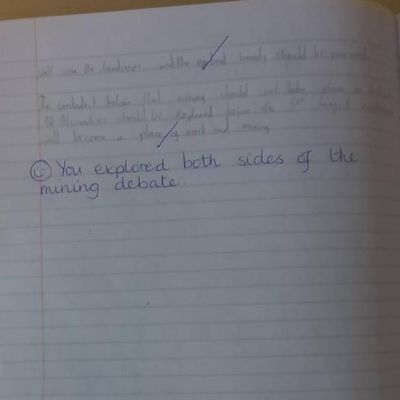 will scar the landscape and the natural beauty should be preserved.
To conclude I believe that mining should not take place in
Alternatives should be explored before the largest
will become a place of and mining
☺ You explored both sides of the
mining debate.